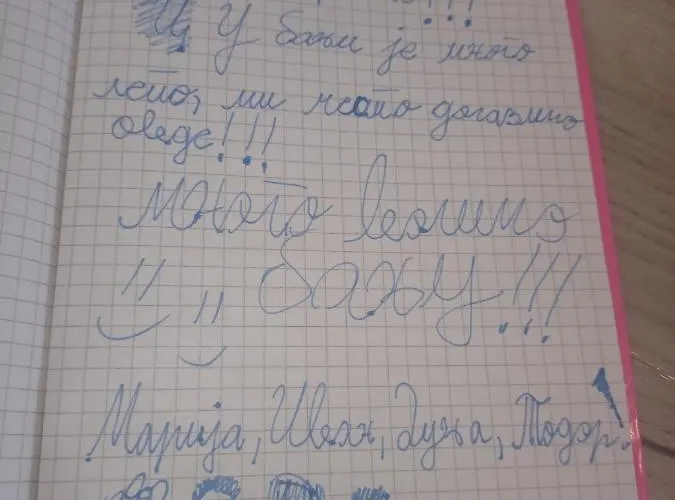 !!!
У бањи је много
лепо, ми често долазимо
овде!!!
Много волимо
бању!!!
Марија, Иван, Дуња, Тодор.